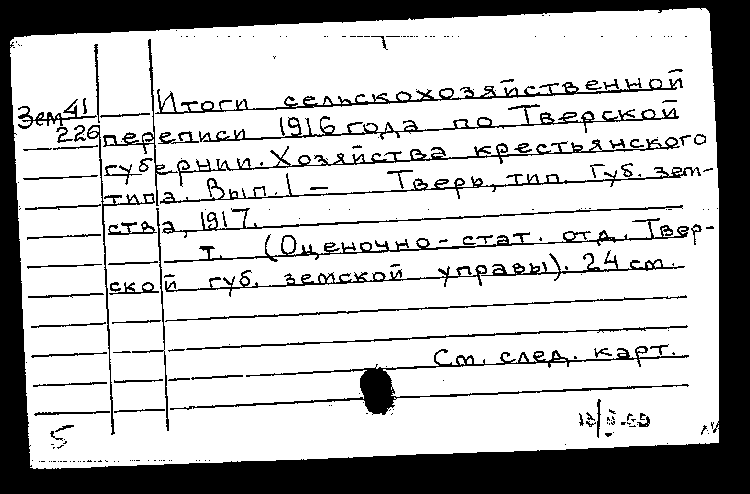 Зем 41
226
Итоги сельскохозяйственной
переписи 1916 года по Тверской
губернии. Хозяйства крестьянского
типа. Вып. 1 – Тверь, тип. Губ. зем-
ства, 1917.
т. (Оценочно-стат. отд. Твер-
ской губ. земской управы). 24 см.
См. след. карт.
5